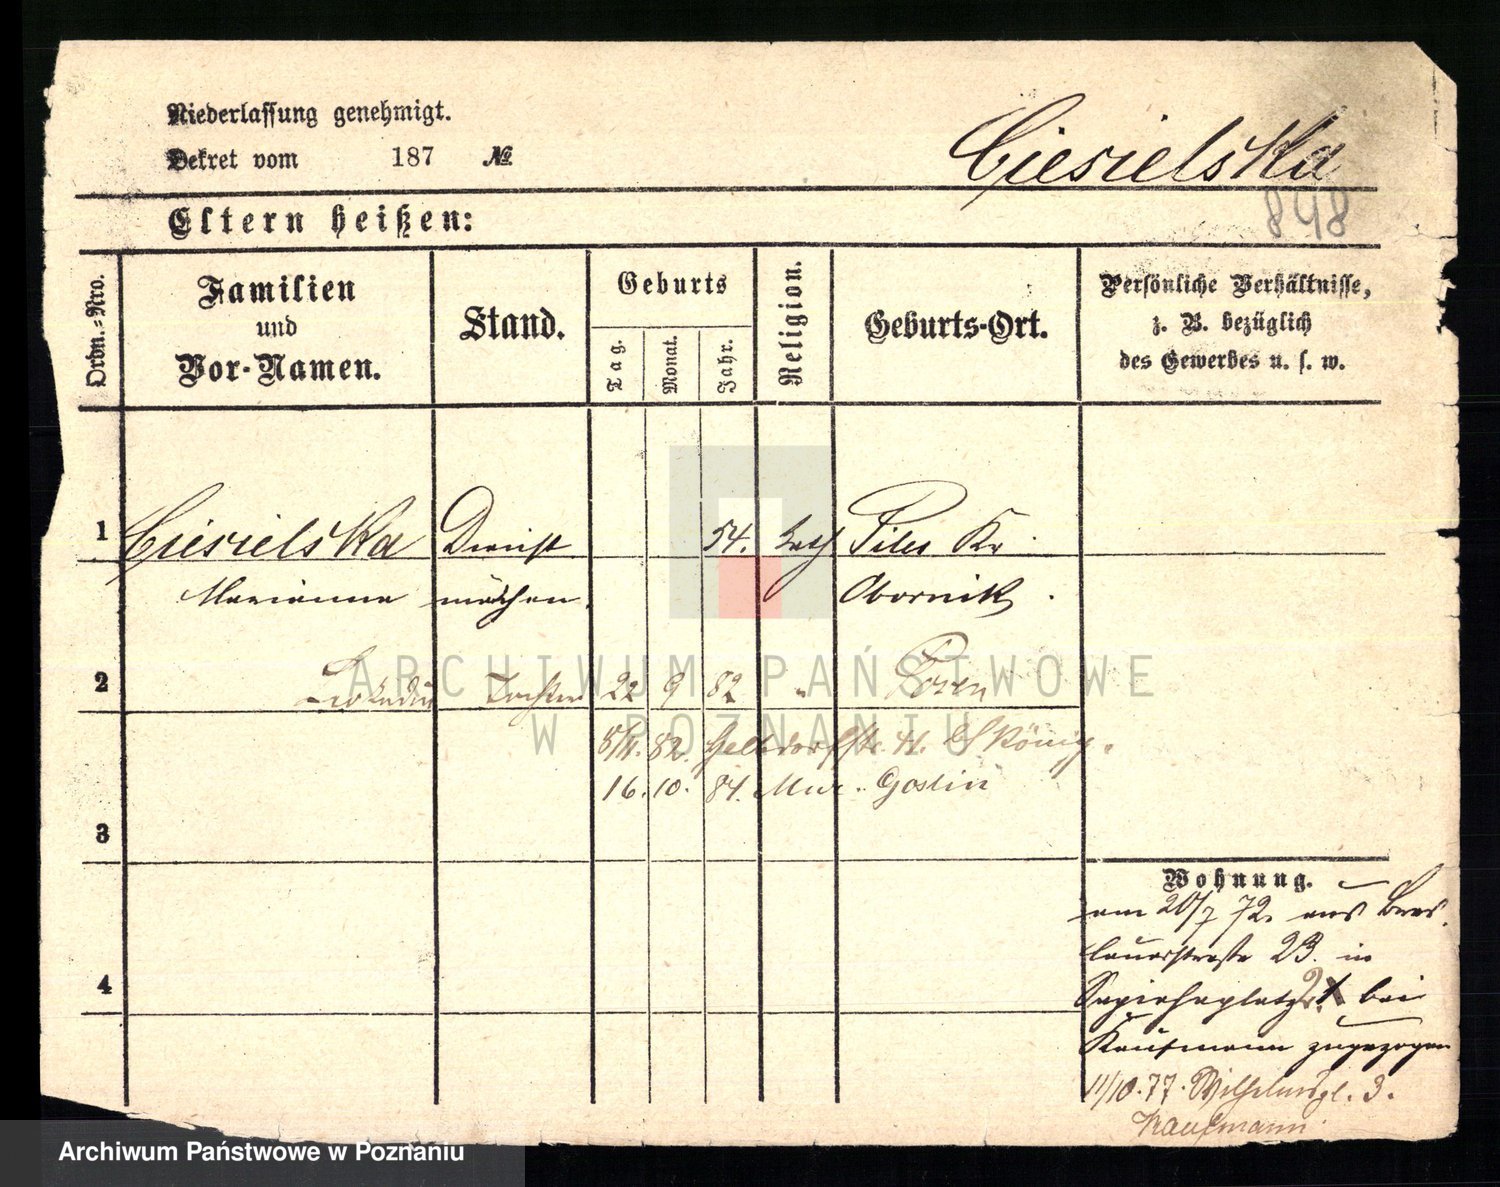 Niederlassung genehmigt.
Dekret vom 187 №
Ciesielska
898
Eltern heißen:
Ordn.=Nro.
Familien
und
Vor-Namen.
Stand.
Geburts
Tag.
Monat.
Jahr.
Religion.
Geburts-Ort.
Persönliche Verhältnisse,
z. B. bezüglich
des Gewerbes u. s. w.
1 Ciesielska Dienst 54. kath Kr
Marianne mädchen. Obornik.
2 Leokadia Tochter 22 9 82 " Posen
8/11. 82. 41. König.
16. 10. 84. Mur. Goslin
3
4
Wohnung.
am 20/7 72. aus Bres-
lauerstraße 23. in
Sapiehaplatz bei
Kaufmann zugezogen
11/10.77. Wilhelmspl. 3.
Kaufmann
ARCHIWUM PAŃSTWOWE
W POZNANIU
Archiwum Państwowe w Poznaniu